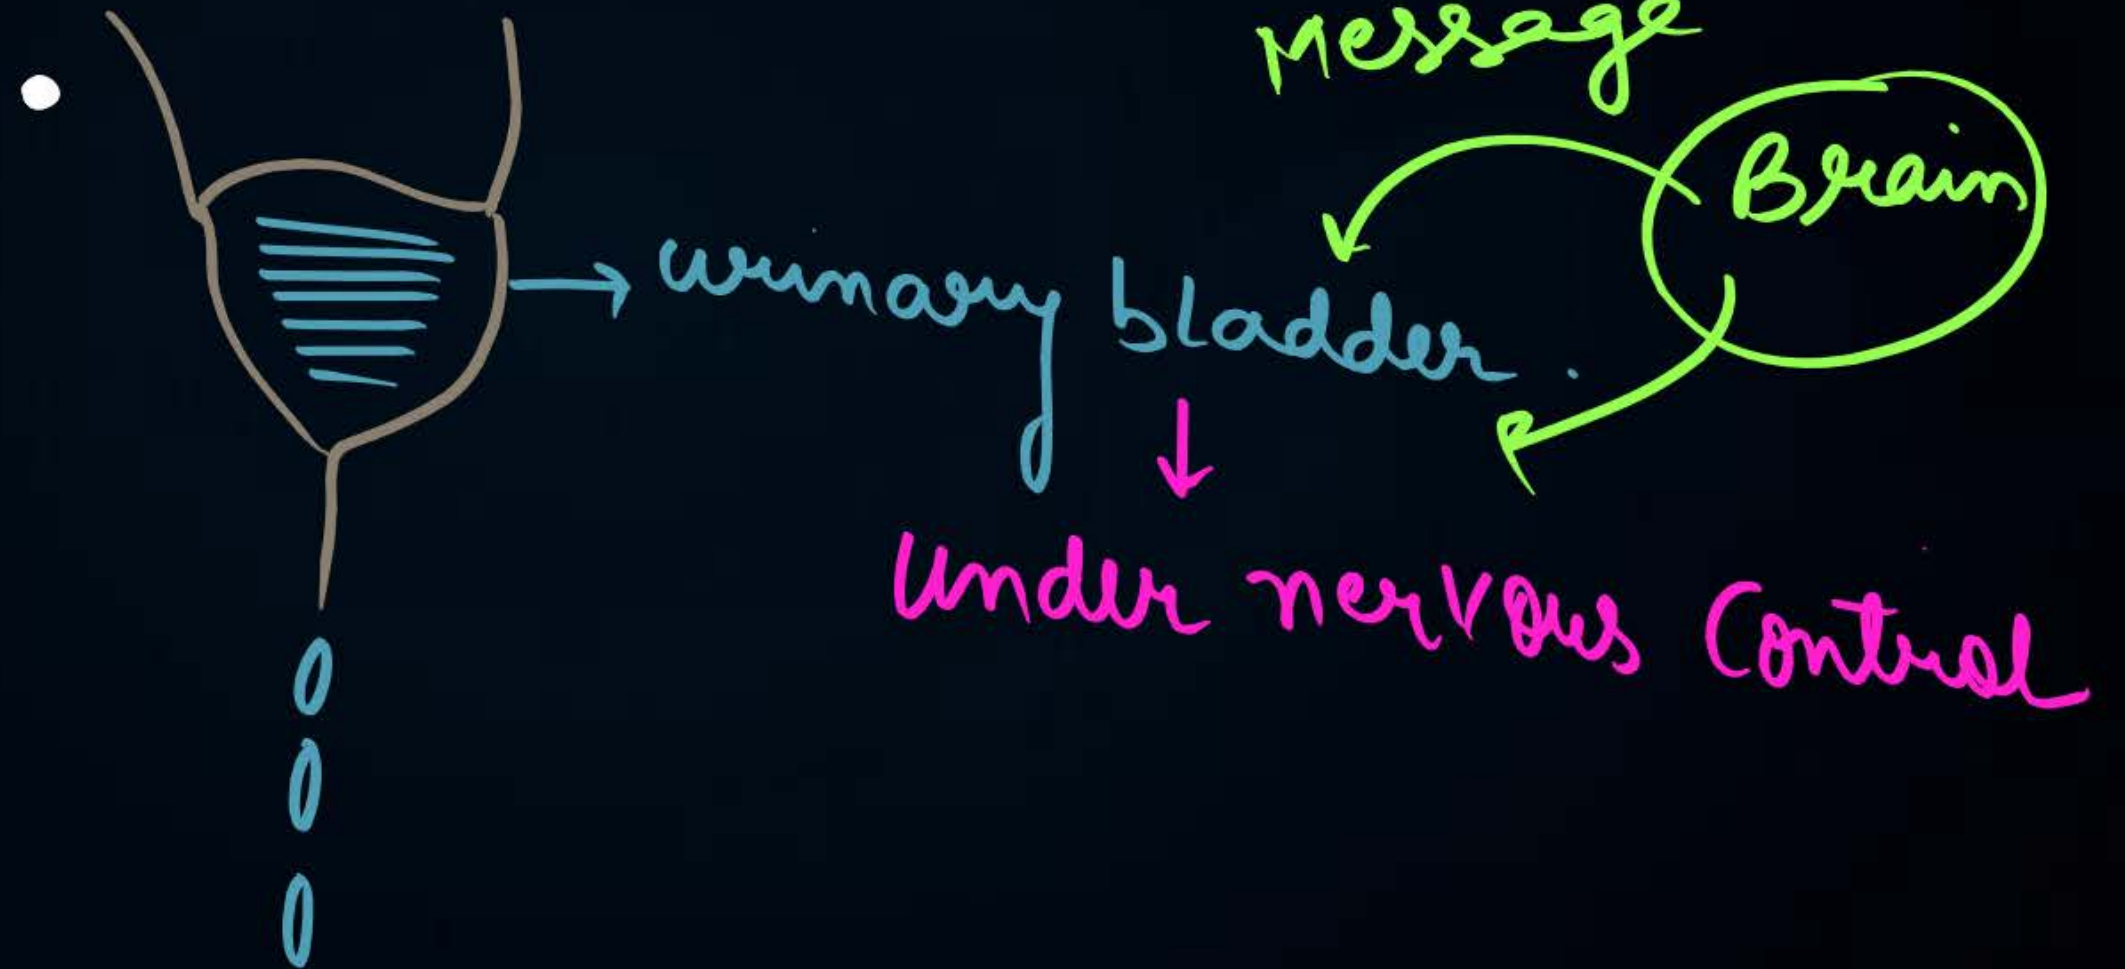 Message
Brain
urinary bladder.
Under nervous Control